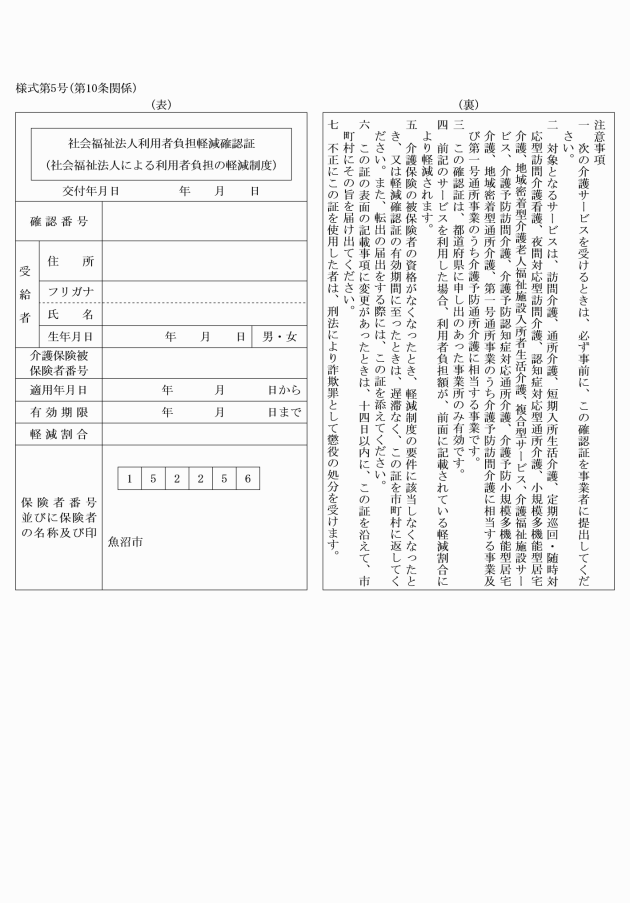 様式第5号(第10条関係)
(表)
社会福祉法人利用者負担軽減確認証
(社会福祉法人による利用者負担の軽減制度)
交付年月日 年 月 日
確認番号
受給者
住 所
フリガナ
氏 名
生年月日 年 月 日 男・女
介護保険被
保険者番号
適用年月日 年 月 日から
有効期限 年 月 日まで
軽減割合
保険者番号
並びに保険者
の名称及び印
1 5 2 2 5 6
魚沼市
(裏)
注意事項
一 次の介護サービスを受けるときは、必ず事前に、この確認証を事業者に提出してくだ
さい。
二 対象となるサービスは、訪問介護、通所介護、短期入所生活介護、定期巡回・随時対
応型訪問介護看護、夜間対応型訪問介護、認知症対応型通所介護、小規模多機能型居宅
介護、地域密着型介護老人福祉施設入所者生活介護、複合型サービス、介護福祉施設サー
ビス、介護予防訪問介護、介護予防認知症対応通所介護、介護予防小規模多機能型居宅
介護、地域密着型通所介護、第一号通所事業のうち介護予防訪問介護に相当する事業及
び第一号通所事業のうち介護予防通所介護に相当する事業です。
三 この確認証は、都道府県に申し出のあった事業所のみ有効です。
四 前記のサービスを利用した場合、利用者負担額が、前面に記載されている軽減割合に
より軽減されます。
五 介護保険の被保険者の資格がなくなったとき、軽減制度の要件に該当しなくなったと
き、又は軽減確認証の有効期間に至ったときは、遅滞なく、この証を市町村に返してく
ださい。また、転出の届出をする際には、この証を添えてください。
六 この証の表面の記載事項に変更があったときは、十四日以内に、この証を沿えて、市
町村にその旨を届け出てください。
七 不正にこの証を使用した者は、刑法により詐欺罪として懲役の処分を受けます。